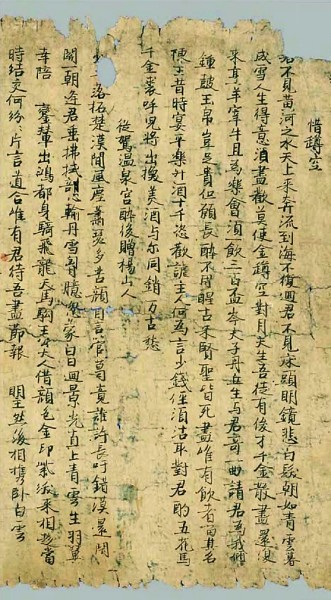 惜罇空
君不見黃河之水天上來奔流到海不復迴君不見床頭明鏡悲白髮朝如青雲暮
成雪人生得意須盡歡莫使金罇空對月天生吾徒有俊才千金散盡還復
來烹羊宰牛且為樂會須飲三百盃岑夫子丹丘生與君哥一曲請君為我傾
鍾皷玉帛豈足貴但願長醉不用醒古來賢聖皆死盡唯有飲者留其名
陳王昔時宴平樂斗酒十千恣歡謔主人何為言少錢徑須沽取對君酌五花馬
千金裘呼兒將出換美酒与尔同銷万古愁
從駕溫泉宮醉後贈楊山人
落拓楚漢間風塵蕭瑟多苦顏自言管葛竟誰許長吁錯漠還閇
關朝逢君垂拂拭剖心輸丹雪胷臆忽蒙白日迴景光直上青雲生羽翼
幸陪 鑾輦出鴻都身騎飛龍天馬駒王公大人借顏色金印紫綬來相趍當
時結交何紛々片言道合唯有君待吾盡節報 明主然後相攜卧白雲